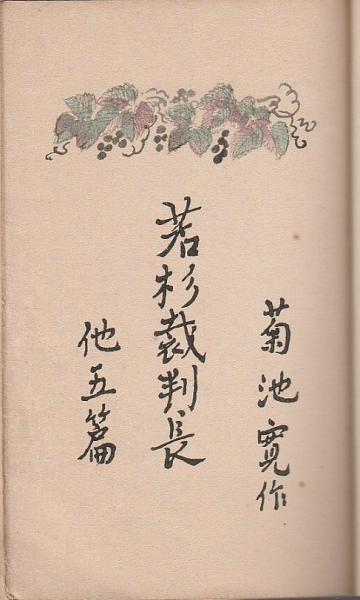 菊池寛作
若杉裁判長
他五篇